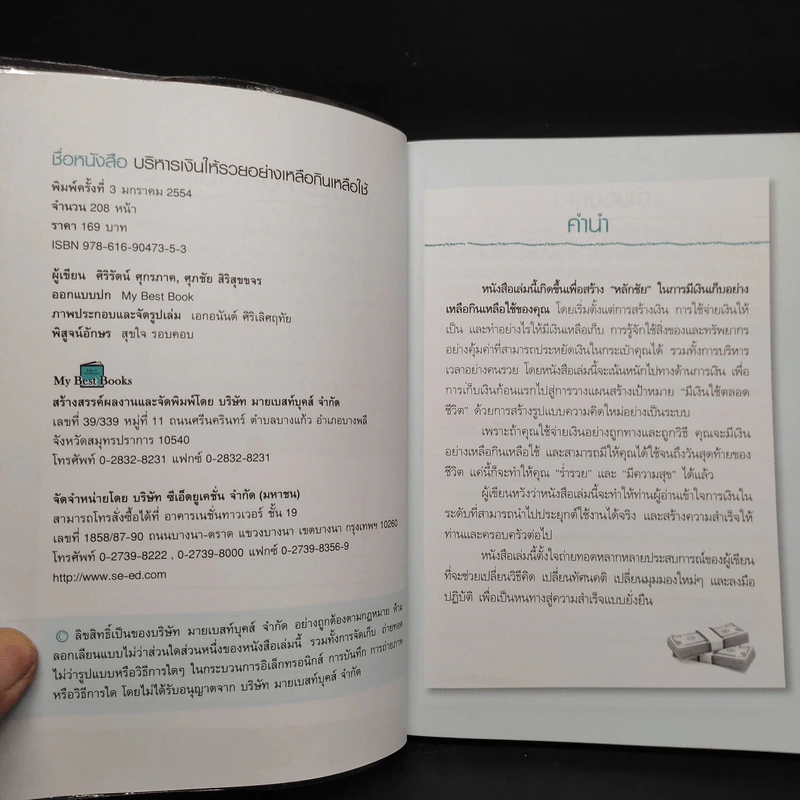 ชื่อหนังสือ บริหารเงินให้รวยอย่างเหลือกินเหลือใช้
พิมพ์ครั้งที่ 3 มกราคม 2554
จำนวน 208 หน้า
ราคา 169 บาท
ISBN 978-616-90473-5-3
ผู้เขียน ศิริรัตน์ ศุกรภาค, ศุภชัย สิริสุขขจร
ออกแบบปก My Best Book
ภาพประกอบและจัดรูปเล่ม เอกอนันต์ ศิริเลิศฤทัย
พิสูจน์อักษร สุขใจ รอบคอบ
My Best Books
สร้างสรรค์ผลงานและจัดพิมพ์โดย บริษัท มายเบสท์บุคส์ จำกัด
เลขที่ 39/339 หมู่ที่ 11 ถนนศรีนครินทร์ ตำบลบางแก้ว อำเภอบางพลี
จังหวัดสมุทรปราการ 10540
โทรศัพท์ 0-2832-8231 แฟกซ์ 0-2832-8231
จัดจำหน่ายโดย บริษัท ซีเอ็ดยูเคชั่น จำกัด (มหาชน)
สามารถโทรสั่งซื้อได้ที่ อาคารเนชั่นทาวเวอร์ ชั้น 19
เลขที่ 1858/87-90 ถนนบางนา-ตราด แขวงบางนา เขตบางนา กรุงเทพฯ 10260
โทรศัพท์ 0-2739-8222 , 0-2739-8000 แฟกซ์ 0-2739-8356-9
http://www.se-ed.com
© ลิขสิทธิ์เป็นของบริษัท มายเบสท์บุคส์ จำกัด อย่างถูกต้องตามกฎหมาย ห้าม
ลอกเลียนแบบไม่ว่าส่วนใดส่วนหนึ่งของหนังสือเล่มนี้ รวมทั้งการจัดเก็บ ถ่ายทอด
ไม่ว่ารูปแบบหรือวิธีการใดๆ ในกระบวนการอิเล็กทรอนิกส์ การบันทึก การถ่ายภาพ
หรือวิธีการใด โดยไม่ได้รับอนุญาตจาก บริษัท มายเบสท์บุคส์ จำกัด
คำนำ
หนังสือเล่มนี้เกิดขึ้นเพื่อสร้าง "หลักชัย" ในการมีเงินเก็บอย่าง
เหลือกินเหลือใช้ของคุณ โดยเริ่มตั้งแต่การสร้างเงิน การใช้จ่ายเงินให้
เป็น และทำอย่างไรให้มีเงินเหลือเก็บ การรู้จักใช้สิ่งของและทรัพยากร
อย่างคุ้มค่าที่สามารถประหยัดเงินในกระเป๋าคุณได้ รวมทั้งการบริหาร
เวลาอย่างรวย โดยหนังสือเล่มนี้จะเน้นหนักไปทางด้านการเงิน เพื่อ
การเก็บเงินก้อนแรกไปสู่การวางแผนสร้างเป้าหมาย "มีเงินใช้ตลอด
ชีวิต" ด้วยการสร้างรูปแบบความคิดใหม่อย่างเป็นระบบ
เพราะถ้าคุณใช้จ่ายเงินอย่างถูกทางและถูกวิธี คุณจะมีเงิน
อย่างเหลือกินเหลือใช้ และสามารถมีให้คุณได้ใช้จนถึงวันสุดท้ายของ
ชีวิต แค่นี้ก็จะทำให้คุณ "ร่ำรวย" และ "มีความสุข" ได้แล้ว
ผู้เขียนหวังว่าหนังสือเล่มนี้จะทำให้ท่านผู้อ่านเข้าใจการเงินใน
ระดับที่สามารถนำไปประยุกต์ใช้งานได้จริง และสร้างความสำเร็จให้
ท่านและครอบครัวต่อไป
หนังสือเล่มนี้ตั้งใจถ่ายทอดหลากหลายประสบการณ์ของผู้เขียน
ที่จะช่วยเปลี่ยนวิธีคิด เปลี่ยนทัศนคติ เปลี่ยนมุมมองใหม่ๆ และลงมือ
ปฏิบัติ เพื่อเป็นหนทางสู่ความสำเร็จแบบยั่งยืน